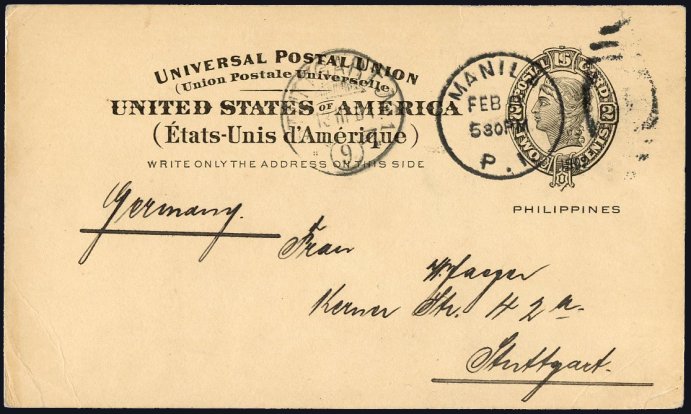 UNIVERSAL POSTAL UNION
(Union Postale Universelle)
UNITED STATES OF AMERICA
(États-Unis d'Amérique)
WRITE ONLY THE ADDRESS ON THIS SIDE
MANIL
FEB
5 30 P
P.
POSTAL CARD
TWO CENTS
PHILIPPINES
Germany.
Frau
W. Jaeger
Kerner Str. 42 a.
Stuttgart.